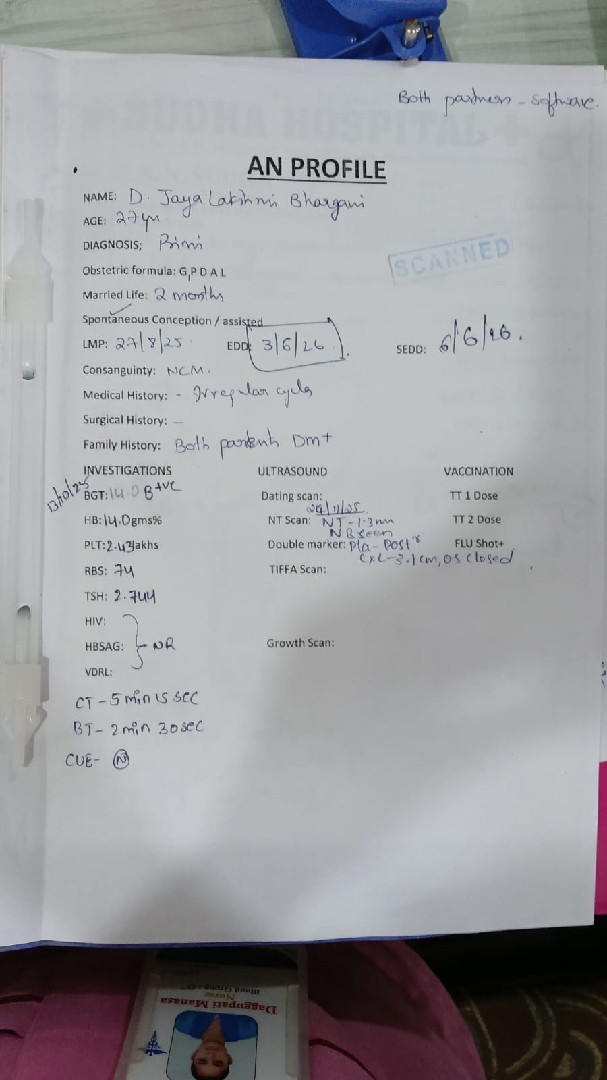 Both partners - Software.
SUDHA HOSPITAL
AN PROFILE
NAME: D. Jaya Lakshmi Bhargavi
AGE: 27yr
DIAGNOSIS; Primi
SCANNED
Obstetric formula: G,P D A L
Married Life: 2 months
Spontaneous Conception / assisted
LMP: 27/8/25 EDD: 3/6/26. SEDD: 6/6/26.
Consanguinty: NCM.
Medical History: - Irregular cycles
Surgical History: —
Family History: Both parents Dm+
INVESTIGATIONS ULTRASOUND VACCINATION
13/10/25
BGT: 14.0 B+ve Dating scan: TT 1 Dose
HB: 14.0gms% NT Scan: NT-1.3mm TT 2 Dose
NB seen
PLT:2.43lakhs Double marker: Pla-Postr FLU Shot+
CXL-3.1cm, OS closed
RBS: 74 TIFFA Scan:
TSH: 2.744
HIV:
HBSAG: NR Growth Scan:
VDRL:
CT - 5 min 15 sec
BT - 2 min 30 sec
CUE- N
Daggupati Manasa
Nurse